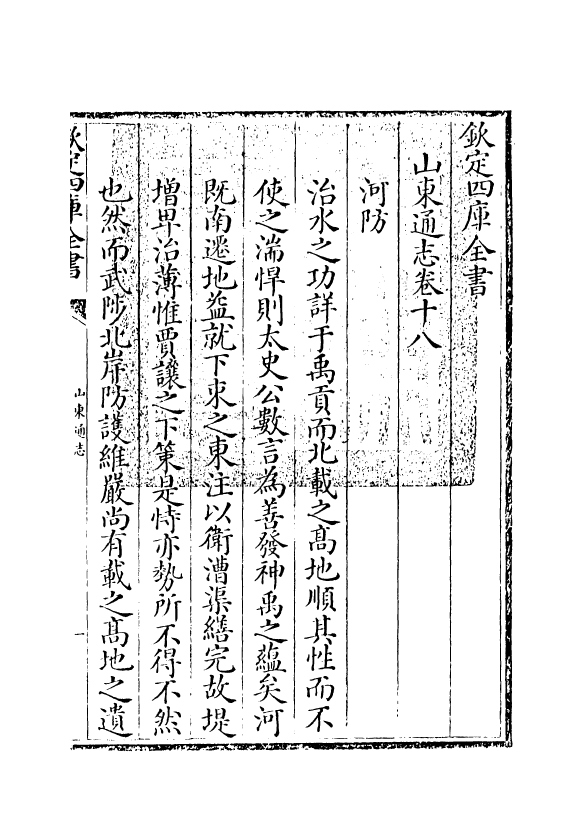 欽定四庫全書
山東通志卷十八
河防
治水之功詳于禹貢而北載之髙地順其性而不
使之湍悍則太史公數言為善發神禹之蘊矣河
既南遷地益就下束之東注以衛漕渠繕完故堤
增卑治薄惟賈讓之下策是恃亦勢所不得不然
也然而武陟北岸防護維嚴尚有載之髙地之遺
欽定四庫全書
山東通志
一